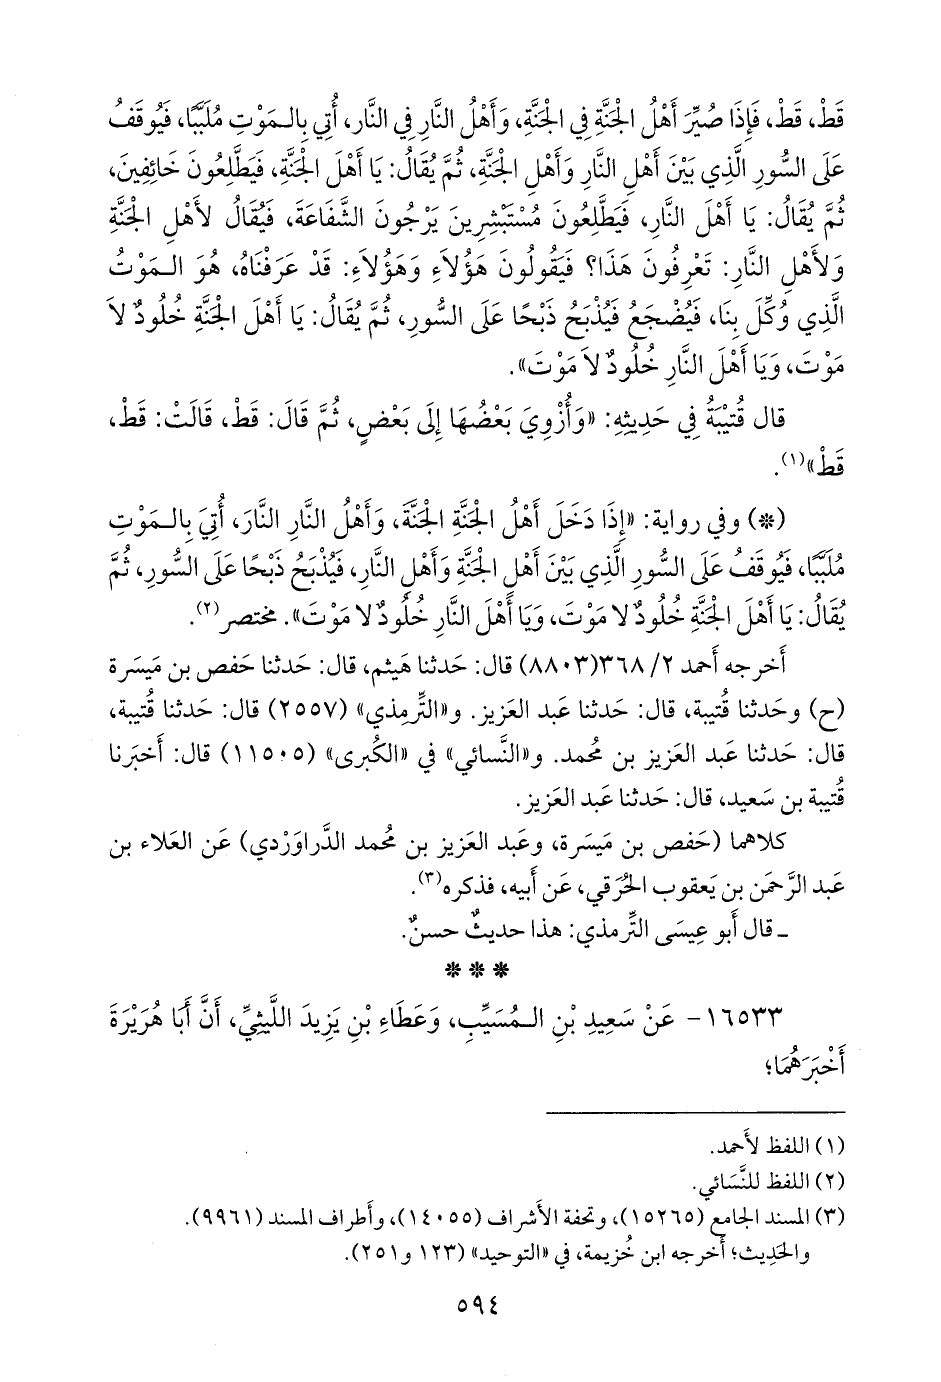 قَطْ، قَطْ، فَإِذَا صُيِّرَ أَهْلُ الجَنَّةِ فِي الجَنَّةِ، وَأَهْلُ النَّارِ فِي النَّارِ، أُتِي بِالمَوْتِ مُلَبَّبًا، فَيُوقَفُ
عَلَى السُّورِ الَّذِي بَيْنَ أَهْلِ النَّارِ وَأَهْلِ الجَنَّةِ، ثُمَّ يُقَالُ: يَا أَهْلَ الجَنَّةِ، فَيَطَّلِعُونَ خَائِفِينَ،
ثُمَّ يُقَالُ: يَا أَهْلَ النَّارِ، فَيَطَّلِعُونَ مُسْتَبْشِرِينَ يَرْجُونَ الشَّفَاعَةَ، فَيُقَالُ لأَهْلِ الجَنَّةِ
وَلأَهْلِ النَّارِ: تَعْرِفُونَ هَذَا؟ فَيَقُولُونَ هَؤُلَاءِ وَهَؤُلَاءِ: قَدْ عَرَفْنَاهُ، هُوَ المَوْتُ
الَّذِي وُكِّلَ بِنَا، فَيُضْجَعُ فَيُذْبَحُ ذَبْحًا عَلَى السُّورِ، ثُمَّ يُقَالُ: يَا أَهْلَ الجَنَّةِ خُلُودٌ لاَ
مَوْتَ، وَيَا أَهْلَ النَّارِ خُلُودٌ لاَ مَوْتَ».
قال قُتَيْبَةُ فِي حَدِيثِهِ: «وَأُزْوِيَ بَعْضُهَا إِلَى بَعْضٍ، ثُمَّ قَالَ: قَطْ، قَالَتْ: قَطْ،
قَطْ»(١).
(*) وفي رواية: «إِذَا دَخَلَ أَهْلُ الجَنَّةِ الجَنَّةَ، وَأَهْلُ النَّارِ النَّارَ، أُتِيَ بِالمَوْتِ
مُلَبَّبًا، فَيُوقَفُ عَلَى السُّورِ الَّذِي بَيْنَ أَهْلِ الجَنَّةِ وَأَهْلِ النَّارِ، فَيُذْبَحُ ذَبْحًا عَلَى السُّورِ، ثُمَّ
يُقَالُ: يَا أَهْلَ الجَنَّةِ خُلُودٌ لَا مَوْتَ، وَيَا أَهْلَ النَّارِ خُلُودٌ لَا مَوْتَ». مختصر(٢).
أخرجه أحمد ٢/ ٣٦٨(٨٨٠٣) قال: حَدثنا هَيثم، قال: حَدثنا حَفص بن مَيسَرة
(ح) وحَدثنا قُتيبة، قال: حَدثنا عَبد العَزيز. و«التِّرمِذي» (٢٥٥٧) قال: حَدثنا قُتيبة،
قال: حَدثنا عَبد العَزيز بن مُحمد. و«النَّسائي» في «الكُبرى» (١١٥٠٥) قال: أَخبَرنا
قُتيبة بن سَعيد، قال: حَدثنا عَبد العَزيز.
كلاهما (حَفص بن مَيسَرة، وعَبد العَزيز بن مُحمد الدَّراوَرْدي) عَن العَلاء بن
عَبد الرَّحمَن بن يَعقوب الحُرَقي، عَن أَبيه، فذكره(٣).
ـ قال أَبو عِيسَى التِّرمذي: هذا حديثٌ حسنٌ.
* * *
١٦٥٣٣- عَنْ سَعِيدِ بْنِ المُسَيِّبِ، وَعَطَاءِ بْنِ يَزِيدَ اللَّيثِيِّ، أَنَّ أَبَا هُرَيْرَةَ
أَخْبَرَهُمَا؛
(١) اللفظ لأَحمد.
(٢) اللفظ للنَّسَائي.
(٣) المسند الجامع (١٥٢٦٥)، وتحفة الأشراف (١٤٠٥٥)، وأطراف المسند (٩٩٦١).
والحَدِيث؛ أخرجه ابن خُزيمة، في «التوحيد» (١٢٣ و٢٥١).
٥٩٤